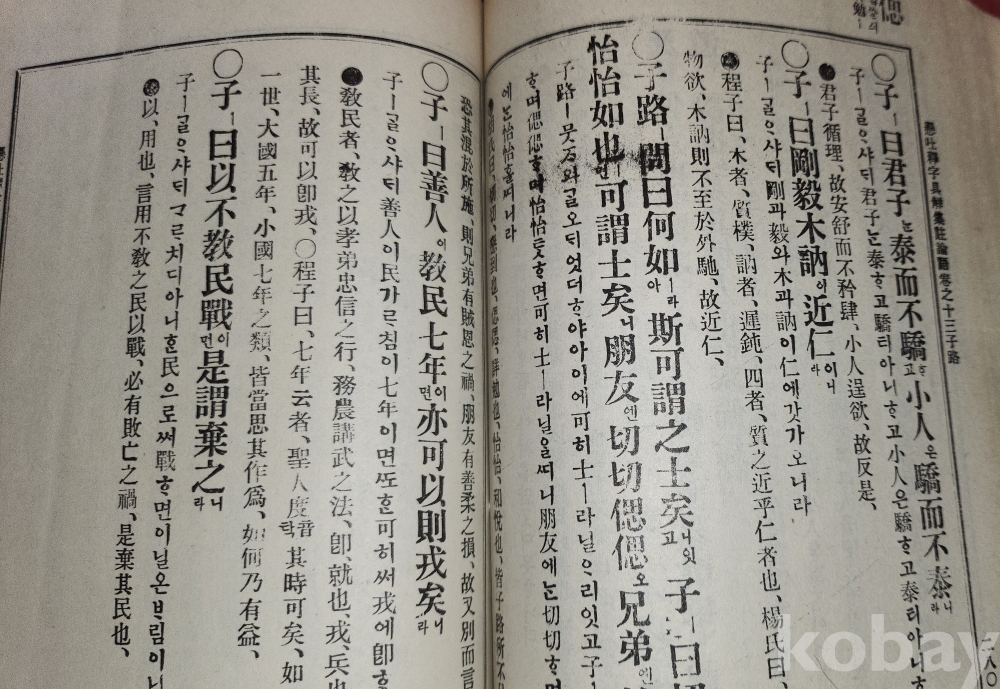 偲
懸吐釋字具解集註論語卷之十三 子路
二八〇
○子ㅣ曰君子는泰而不驕ᄒᆞ고小人은驕而不泰니라
子ㅣᄀᆞᆯᄋᆞ샤ᄃᆡ君子ᄂᆞᆫ泰ᄒᆞ고驕티아니ᄒᆞ고小人은驕ᄒᆞ고泰티아니
君子循理、故安舒而不矜肆、小人逞欲、故反是、
○子ㅣ曰剛毅木訥이近仁이니라
子ㅣᄀᆞᆯᄋᆞ샤ᄃᆡ剛과毅와木과訥이仁에갓가오니라
程子曰、木者、質樸、訥者、遲鈍、四者、質之近乎仁者也、楊氏曰、
物欲、木訥則不至於外馳、故近仁、
○子路ㅣ問曰何如ㅣ라아斯可謂之士矣니잇고子ㅣ曰切
怡怡如也ㅣ면可謂士矣니朋友엔切切偲偲오兄弟엔
子路ㅣ뭇ᄌᆞ와ᄀᆞᆯ오ᄃᆡ엇더ᄒᆞ야아이에可히士ㅣ라닐ᄋᆞ리잇고子
ᄒᆞ며偲偲ᄒᆞ며怡怡ᄐᆞᆺᄒᆞ면可히士ㅣ라닐을ᄯᅵ니朋友에ᄂᆞᆫ切切ᄒᆞ
에ᄂᆞᆫ怡怡홀ᄯᅵ니라
胡氏曰、切切、懇到也、偲偲、詳勉也、怡怡、和悅也、皆子路所不
恐其混於所施、則兄弟有賊恩之禍、朋友有善柔之損、故又別而言
○子ㅣ曰善人이敎民七年이면亦可以卽戎矣니라
子ㅣᄀᆞᆯᄋᆞ샤ᄃᆡ善人이民가ᄅᆞ침이七年이면ᄯᅩᄒᆞᆫ可히써戎에卽ᄒᆞ
敎民者、敎之以孝弟忠信之行、務農講武之法、卽、就也、戎、兵也
其長、故可以卽戎、○程子曰、七年云者、聖人度音탁其時可矣、如
一世、大國五年、小國七年之類、皆當思其作爲、如何乃有益、
○子ㅣ曰以不敎民戰이면是謂棄之니라
子ㅣᄀᆞᆯᄋᆞ샤ᄃᆡᄀᆞᄅᆞ치디아니ᄒᆞᆫ民으로써戰ᄒᆞ면이닐온ᄇᆞ림이니
以、用也、言用不敎之民以戰、必有敗亡之禍、是棄其民也、
kobay